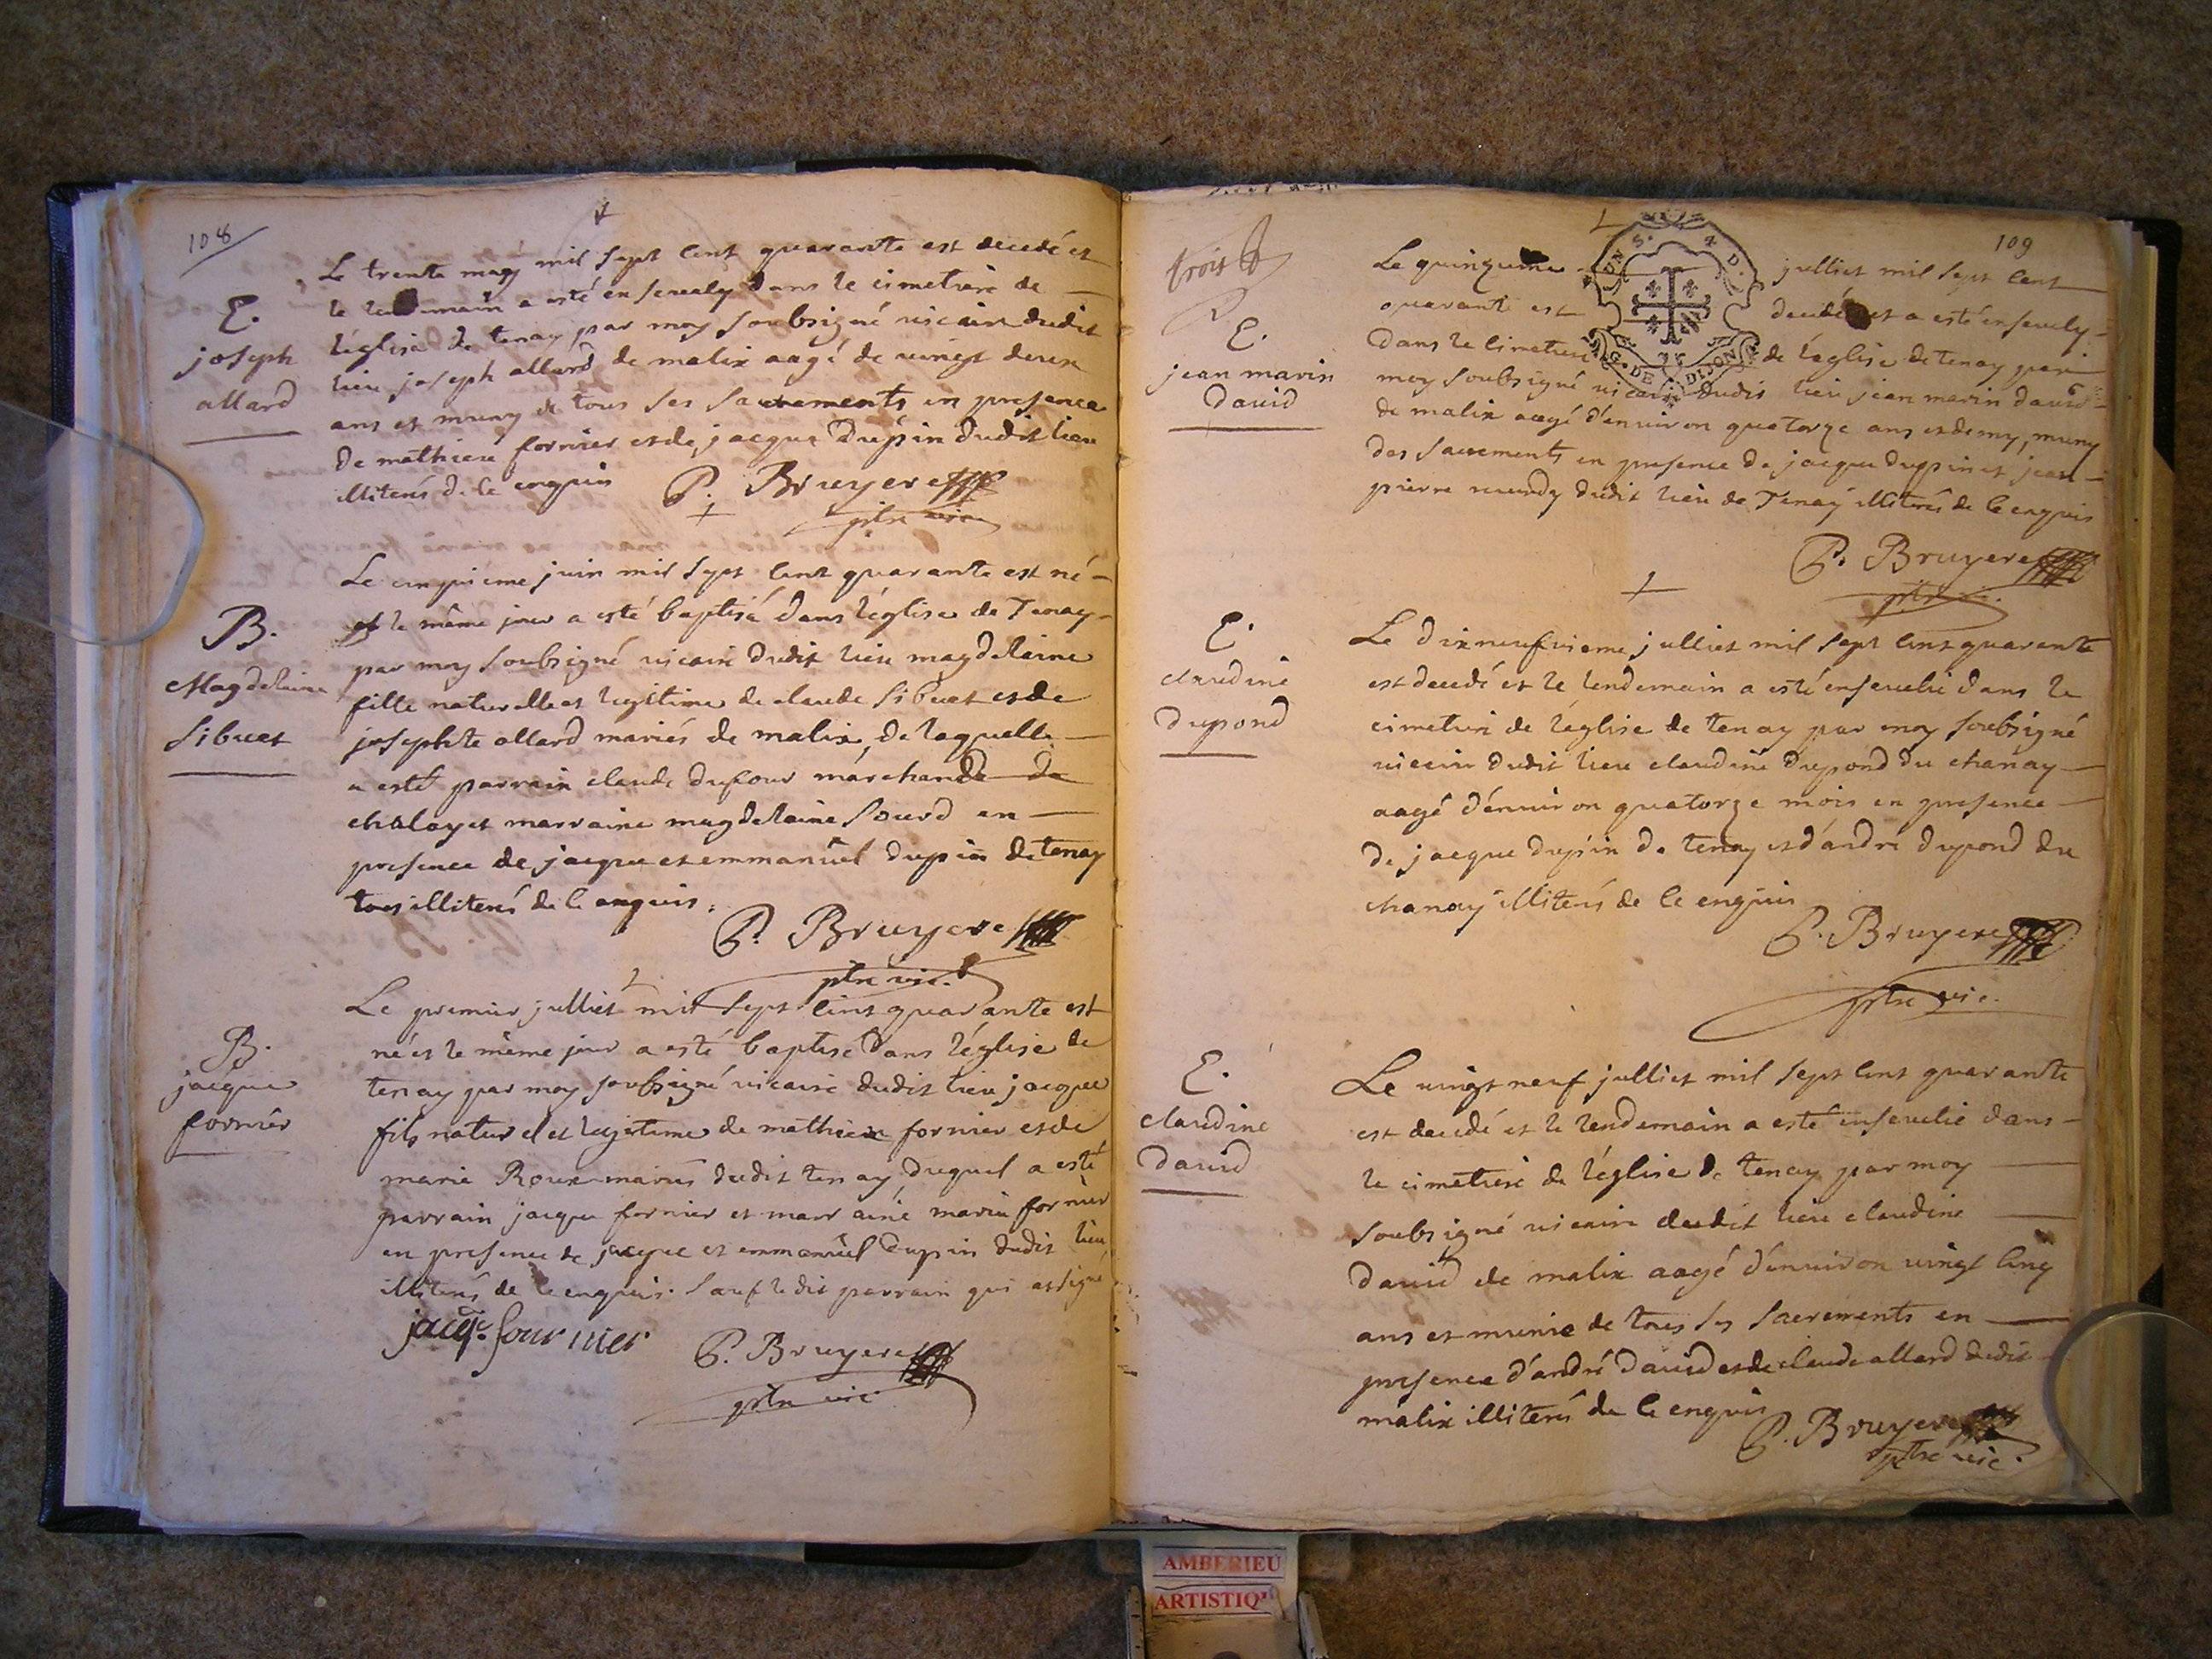 108
Le trente may mil sept cent quarante est decedé et
le lendemain a esté ensevely dans le cimetiere de
l'église de tenay par moy soubsigné vicaire dudit
lieu joseph allard de malix aagé de vingt deux
ans et muny de tous ses sacrements en presence
de mathieu fornier et de jacque Dupin dudit lieu
illiterés de ce enquis
P. Bruyere
ptre vic
E.
joseph
allard
Le cinquieme juin mil sept cent quarante est né
et le même jour a esté baptisé dans l'église de Tenay
par moy soubsigné vicaire dudit lieu magdelaine
fille naturelle et legitime de claude Sibuet et de
josephte allard mariés de malix, de laquelle
a esté parrain claude dufour marchand de
chaley et marraine magdelaine Sourd en
presence de jacque et emmanüel dupin de tenay
tous illiterés de ce enquis.
P. Bruyere
ptre vic.
B.
Magdelaine
Sibuet
Le premier julliet mil sept cent quarante est
né et le même jour a esté baptisé dans l'église de
tenay par moy soubsigné vicaire dudit lieu jacque
fils naturel et legitime de mathieu fornier et de
marie Roux mariés dudit tenay, duquel a esté
parrain jacque fornier et marraine marie fornier
en presence de jacque et emmanüel dupin dudit lieu
illiterés de ce enquis. Sauf ledit parrain qui a signé
jacq. fournier
P. Bruyere
ptre vic
B.
jacque
fornier
109
trois
Le quinzieme julliet mil sept cent
quarante est decedé et a esté ensevely
dans le cimetiere de l'église de tenay par
moy soubsigné vicaire dudit lieu jean marin david
de malix aagé d'environ quatorze ans et demy, muny
des sacrements en presence de jacque dupin et jean
pierre dudit lieu de Tenay illiterés de ce enquis
P. Bruyere
ptre
S. & D.
G. DE DIJON
E.
jean marin
David
Le dixneufvieme julliet mil sept cent quarante
est decedé et le lendemain a esté ensevelie dans le
cimetiere de l'église de tenay par moy soubsigné
vicaire dudit lieu claudine dupond du chanay
aagé d'environ quatorze mois en presence
de jacque dupin de tenay et d'andré dupond du
chanay illiterés de ce enquis
P. Bruyere
ptre vic.
E.
claudine
dupond
Le vingt neuf julliet mil sept cent quarante
est decedé et le lendemain a esté ensevelie dans
le cimetiere de l'église de tenay par moy
soubsigné vicaire dudit lieu claudine
david de malix aagé d'environ vingt cinq
ans et munie de tous ses sacrements en
presence d'andré david et de claude allard dudit
malix illiterés de ce enquis
P. Bruyere
ptre vic.
E.
claudine
david
AMBERIEU
ARTISTIQ